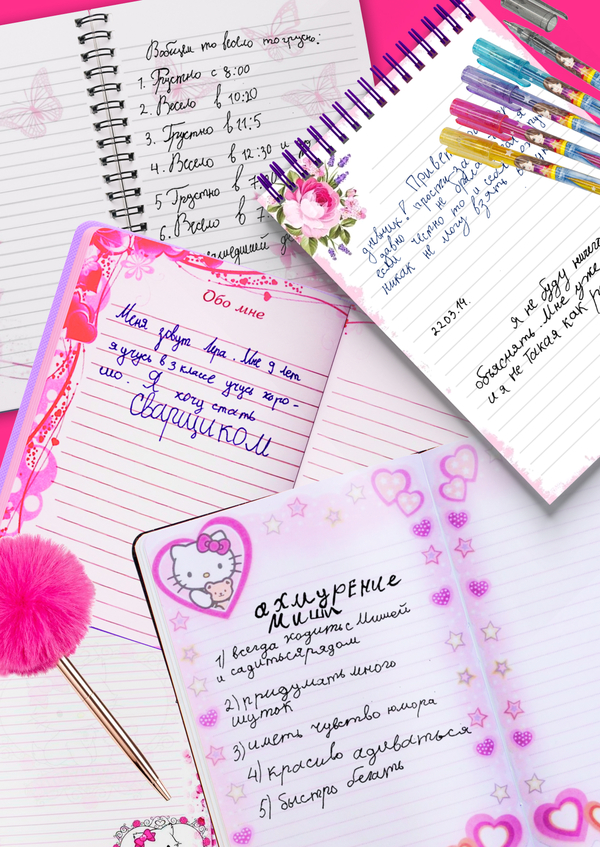 Вобщем то весело то грусно:
1. Грустно с 8:00
2. Весело в 10:20
3. Грустно в 11:5
4. Весело в 12:30 и
5 Грустно в 7
6. Весело в 7.
Привет
дневник! прости за
давно не
если честно то я себя
никак не могу взять в
22.03.14.
я не буду ничего
объяснять. Мне уже
и я не такая как
Обо мне
Меня зовут Ира. Мне 9 лет
я учусь в 3 классе учусь хоро-
шо. Я хочу стать
Сварщиком
охмурение
Миши
1) всегда ходить с Мишей
и садиться рядом
2) придумать много
шуток
3) иметь чувство юмора
4) красиво адиваться
5) быстро бегать